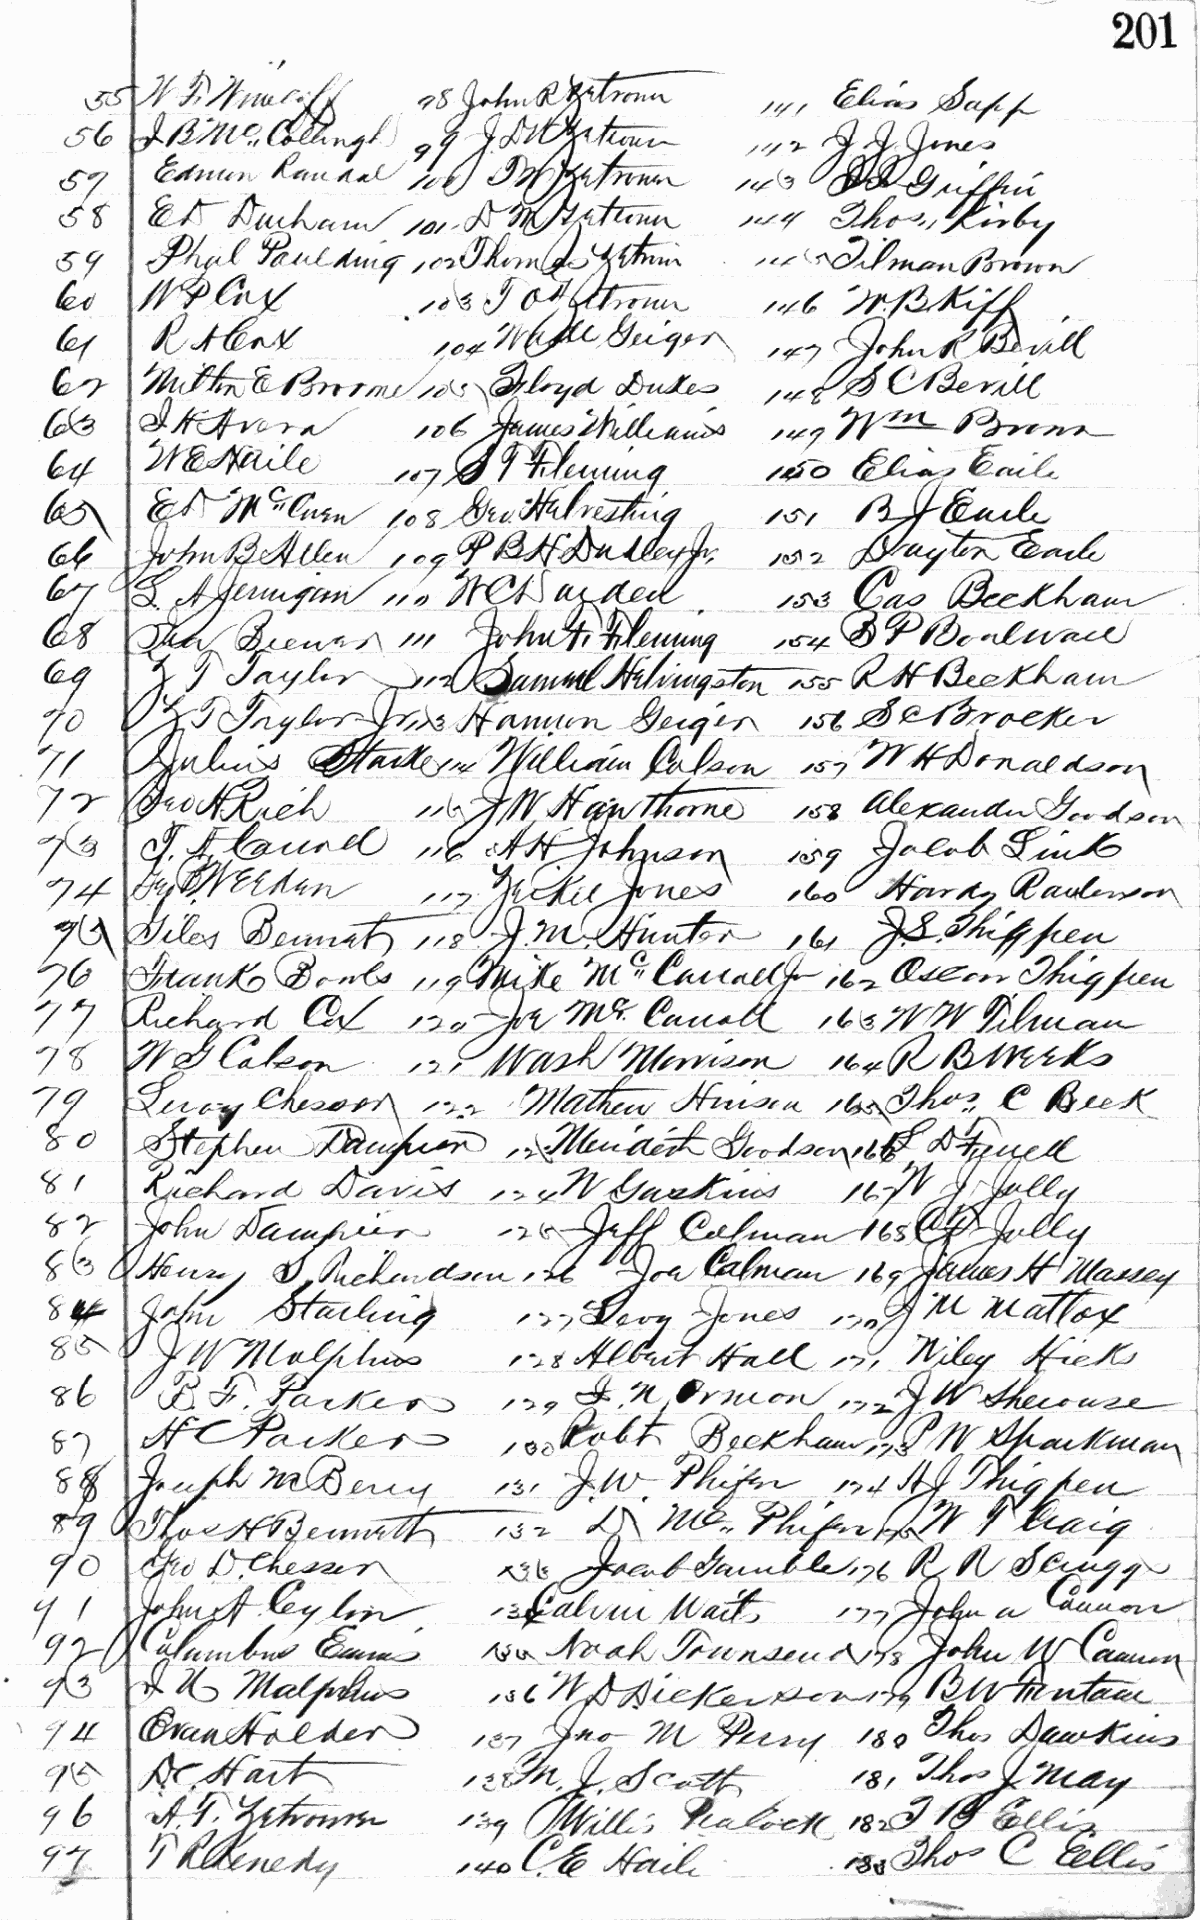 201
55 W. F. Winecoff 98 John R Zetrouer 141 Elias Sapp
56 J B Mc. Collough 99 J. D W Zetrouer 142 J. J. Jones
57 Edmon Randal 100 T W Zetrouer 143 Griffin
58 E D Durham 101 D M Zetrouer 144 Thos. Kirby
59 Phul Paulding 102 Thomas Zetrouer 145 Tilman Brown
60 W P Cox 103 T O Zetrouer 146 W. B. Kiff
61 R A Cox 104 Wade Geiger 147 John R Bevill
62 Milton E Broome 105 Floyd Dukes 148 S C Bevill
63 I H Avara 106 James Williams 149 Wm Brown
64 W E Haile 107 S T Fleming 150 Elias Earle
65 E D McCuen 108 Geo. Halvesting 151 B J Earle
66 John B Allen 109 P B H Dudley Jr. 152 Drayton Earle
67 L. A Jernigan 110 W C Hayden 153 Cas Beckham
68 Ira Brewer 111 John F. Fleming 154 S P Boulware
69 Z T Taylor 112 Samuel Helvingston 155 R H Beckham
70 Z T Taylor Jr. 113 Hamon Geiger 156 S C Brooker
71 Julius Starke 114 William Colson 157 W H Donaldson
72 Geo H Rich 115 J W Hawthorne 158 Alexander Goodson
73 T. A. Carroll 116 A H Johnson 159 Jacob Link
74 Geo. Weeden 117 Zeckie Jones 160 Hardy Raulerson
75 Giles Bennett 118 J. M. Hunter 161 J. S. Thigpen
76 Frank Bowls 119 Mike Mc. Carroll Jr 162 Oscar Thigpen
77 Richard Cox 120 Joe Mc. Carroll 163 W W Tilman
78 W G Colson 121 Wash Morrison 164 R B Weeks
79 Leroy Chesser 122 Mathew Hinson 165 Thos. C Beck
80 Stephen Dampier 123 Merideth Goodson 166 L D Ferrell
81 Richard Davis 124 W Gaskins 167 W J Jolly
82 John Dampier 125 Jeff Colman 168 C P Jolly
83 Henry S. Richardson 126 Joe Colman 169 James H Massey
84 John Starling 127 Levy Jones 170 J M Mattox
85 J W Malphus 128 Albert Hall 171 Wiley Hicks
86 B. F. Parker 129 I. N. Ormon 172 J W Sherouse
87 H C Parker 130 Robt Beckham 173 P W Sparkman
88 Joseph Mc Berry 131 J. W. Phifer 174 H J Thigpen
89 Thos H Bennett 132 D Mc. Phifer 175 W T Craig
90 Geo D. Chesser 133 Jacob Gamble 176 R R Scruggs
91 John A. Ceylon 134 Calvin Waits 177 John A Cannon
92 Columbus Evans 135 Noah Townsend 178 John W Cannon
93 J N Malphus 136 W D Dickerson 179 B W Fontane
94 Evan Holder 137 Jno M Perry 180 Thos Dawkins
95 D. C. Hart 138 M. J. Scott 181 Thos J. May
96 A. T. Zetrouer 139 Willis Pealock 182 T B Ellis
97 T R Kenedy 140 C. E Haile 183 Thos C Ellis